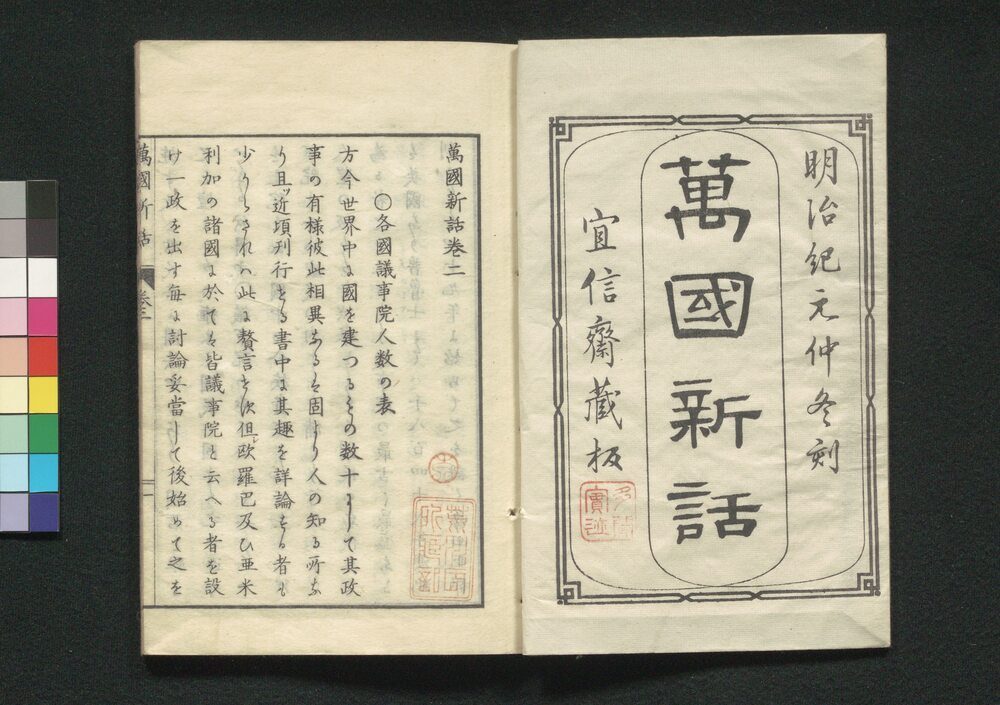 明治紀元仲冬刻
萬國新話
宜信齋藏板
萬國新話卷二
○各國議事院人数の表
方今世界中に國を建つるもの数十にして其政
事の有様彼此相異なるは固より人の知る所な
り且ツ近頃刊行せる書中に其趣を詳論する者も
少からされハ此に贅言せず但歐羅巴及ひ亜米
利加の諸國に於ても皆議事院と云へる者を設
け一政を出す毎に討論妥當して後始めて之を
萬國新話 卷二